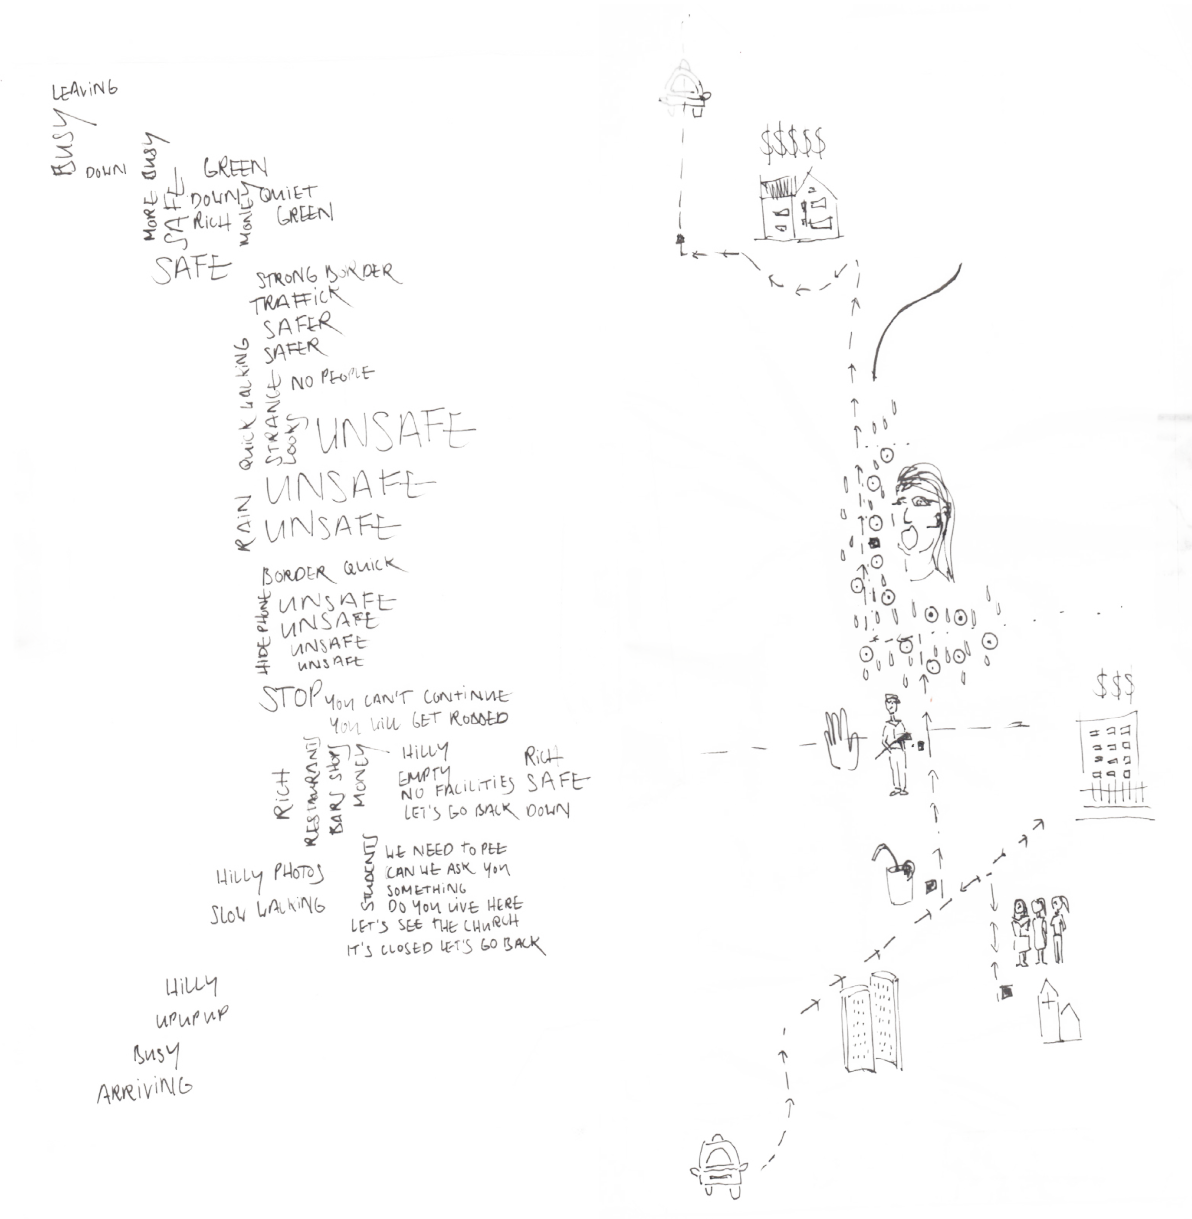 LEAVING
BUSY
DOWN
MORE BUSY
SAFE
GREEN
DOWN
QUIET
RICH
MONEY
GREEN
SAFE
STRONG BORDER
TRAFFICK
SAFER
SAFER
QUICK WALKING
STRANGE
LOOKS
NO PEOPLE
UNSAFE
UNSAFE
RAIN
UNSAFE
BORDER QUICK
HIDE PHONE
UNSAFE
UNSAFE
UNSAFE
UNSAFE
STOP YOU CAN'T CONTINUE
YOU WILL GET ROBBED
RICH
RESTAURANTS
BARS
MONEY
HILLY
EMPTY
NO FACILITIES
LET'S GO BACK DOWN
RICH
SAFE
STUDENTS
WE NEED TO PEE
CAN WE ASK YOU
SOMETHING
DO YOU LIVE HERE
LET'S SEE THE CHURCH
IT'S CLOSED LET'S GO BACK
HILLY PHOTOS
SLOW WALKING
HILLY
UPUPUP
BUSY
ARRIVING
$$$$$
$$$